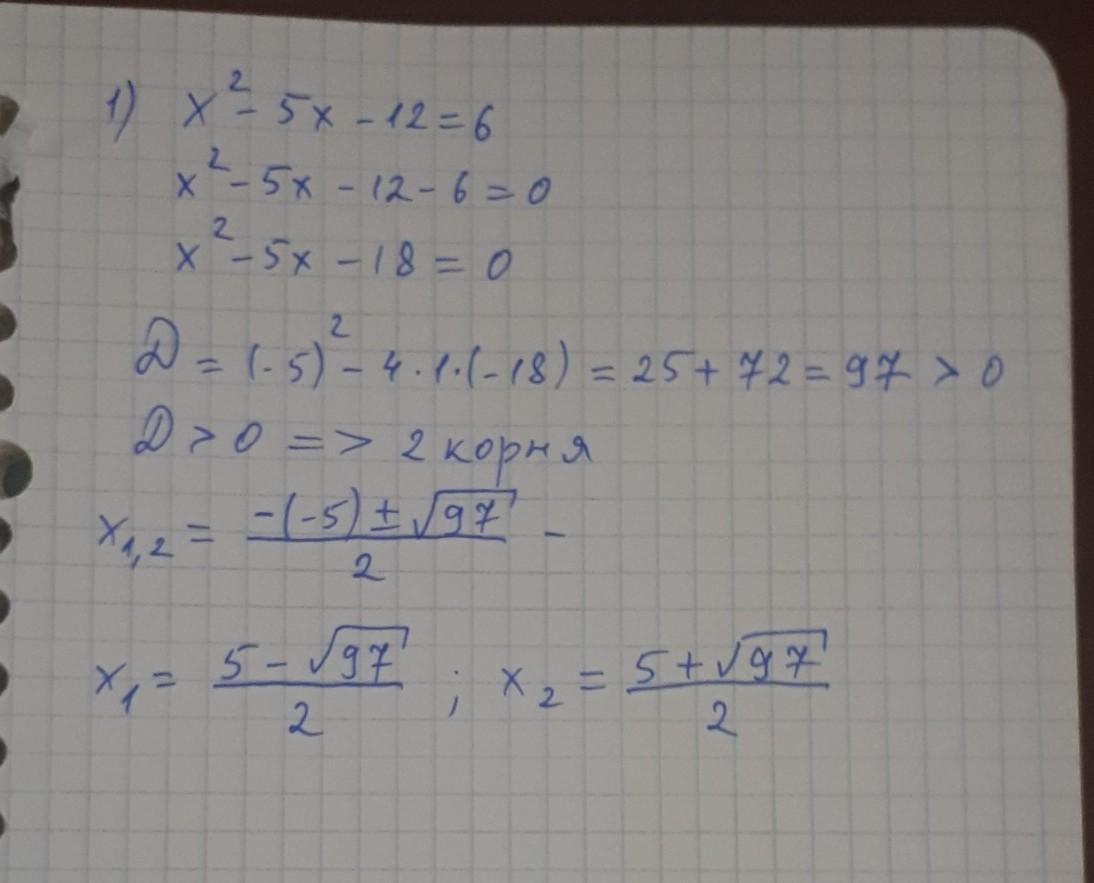 1) x² - 5x - 12 = 6
x² - 5x - 12 - 6 = 0
x² - 5x - 18 = 0
D = (-5)² - 4·1·(-18) = 25 + 72 = 97 > 0
D > 0 => 2 корня
x₁,₂ = (-(-5) ± √97)/2 -
x₁ = (5 - √97)/2 ; x₂ = (5 + √97)/2